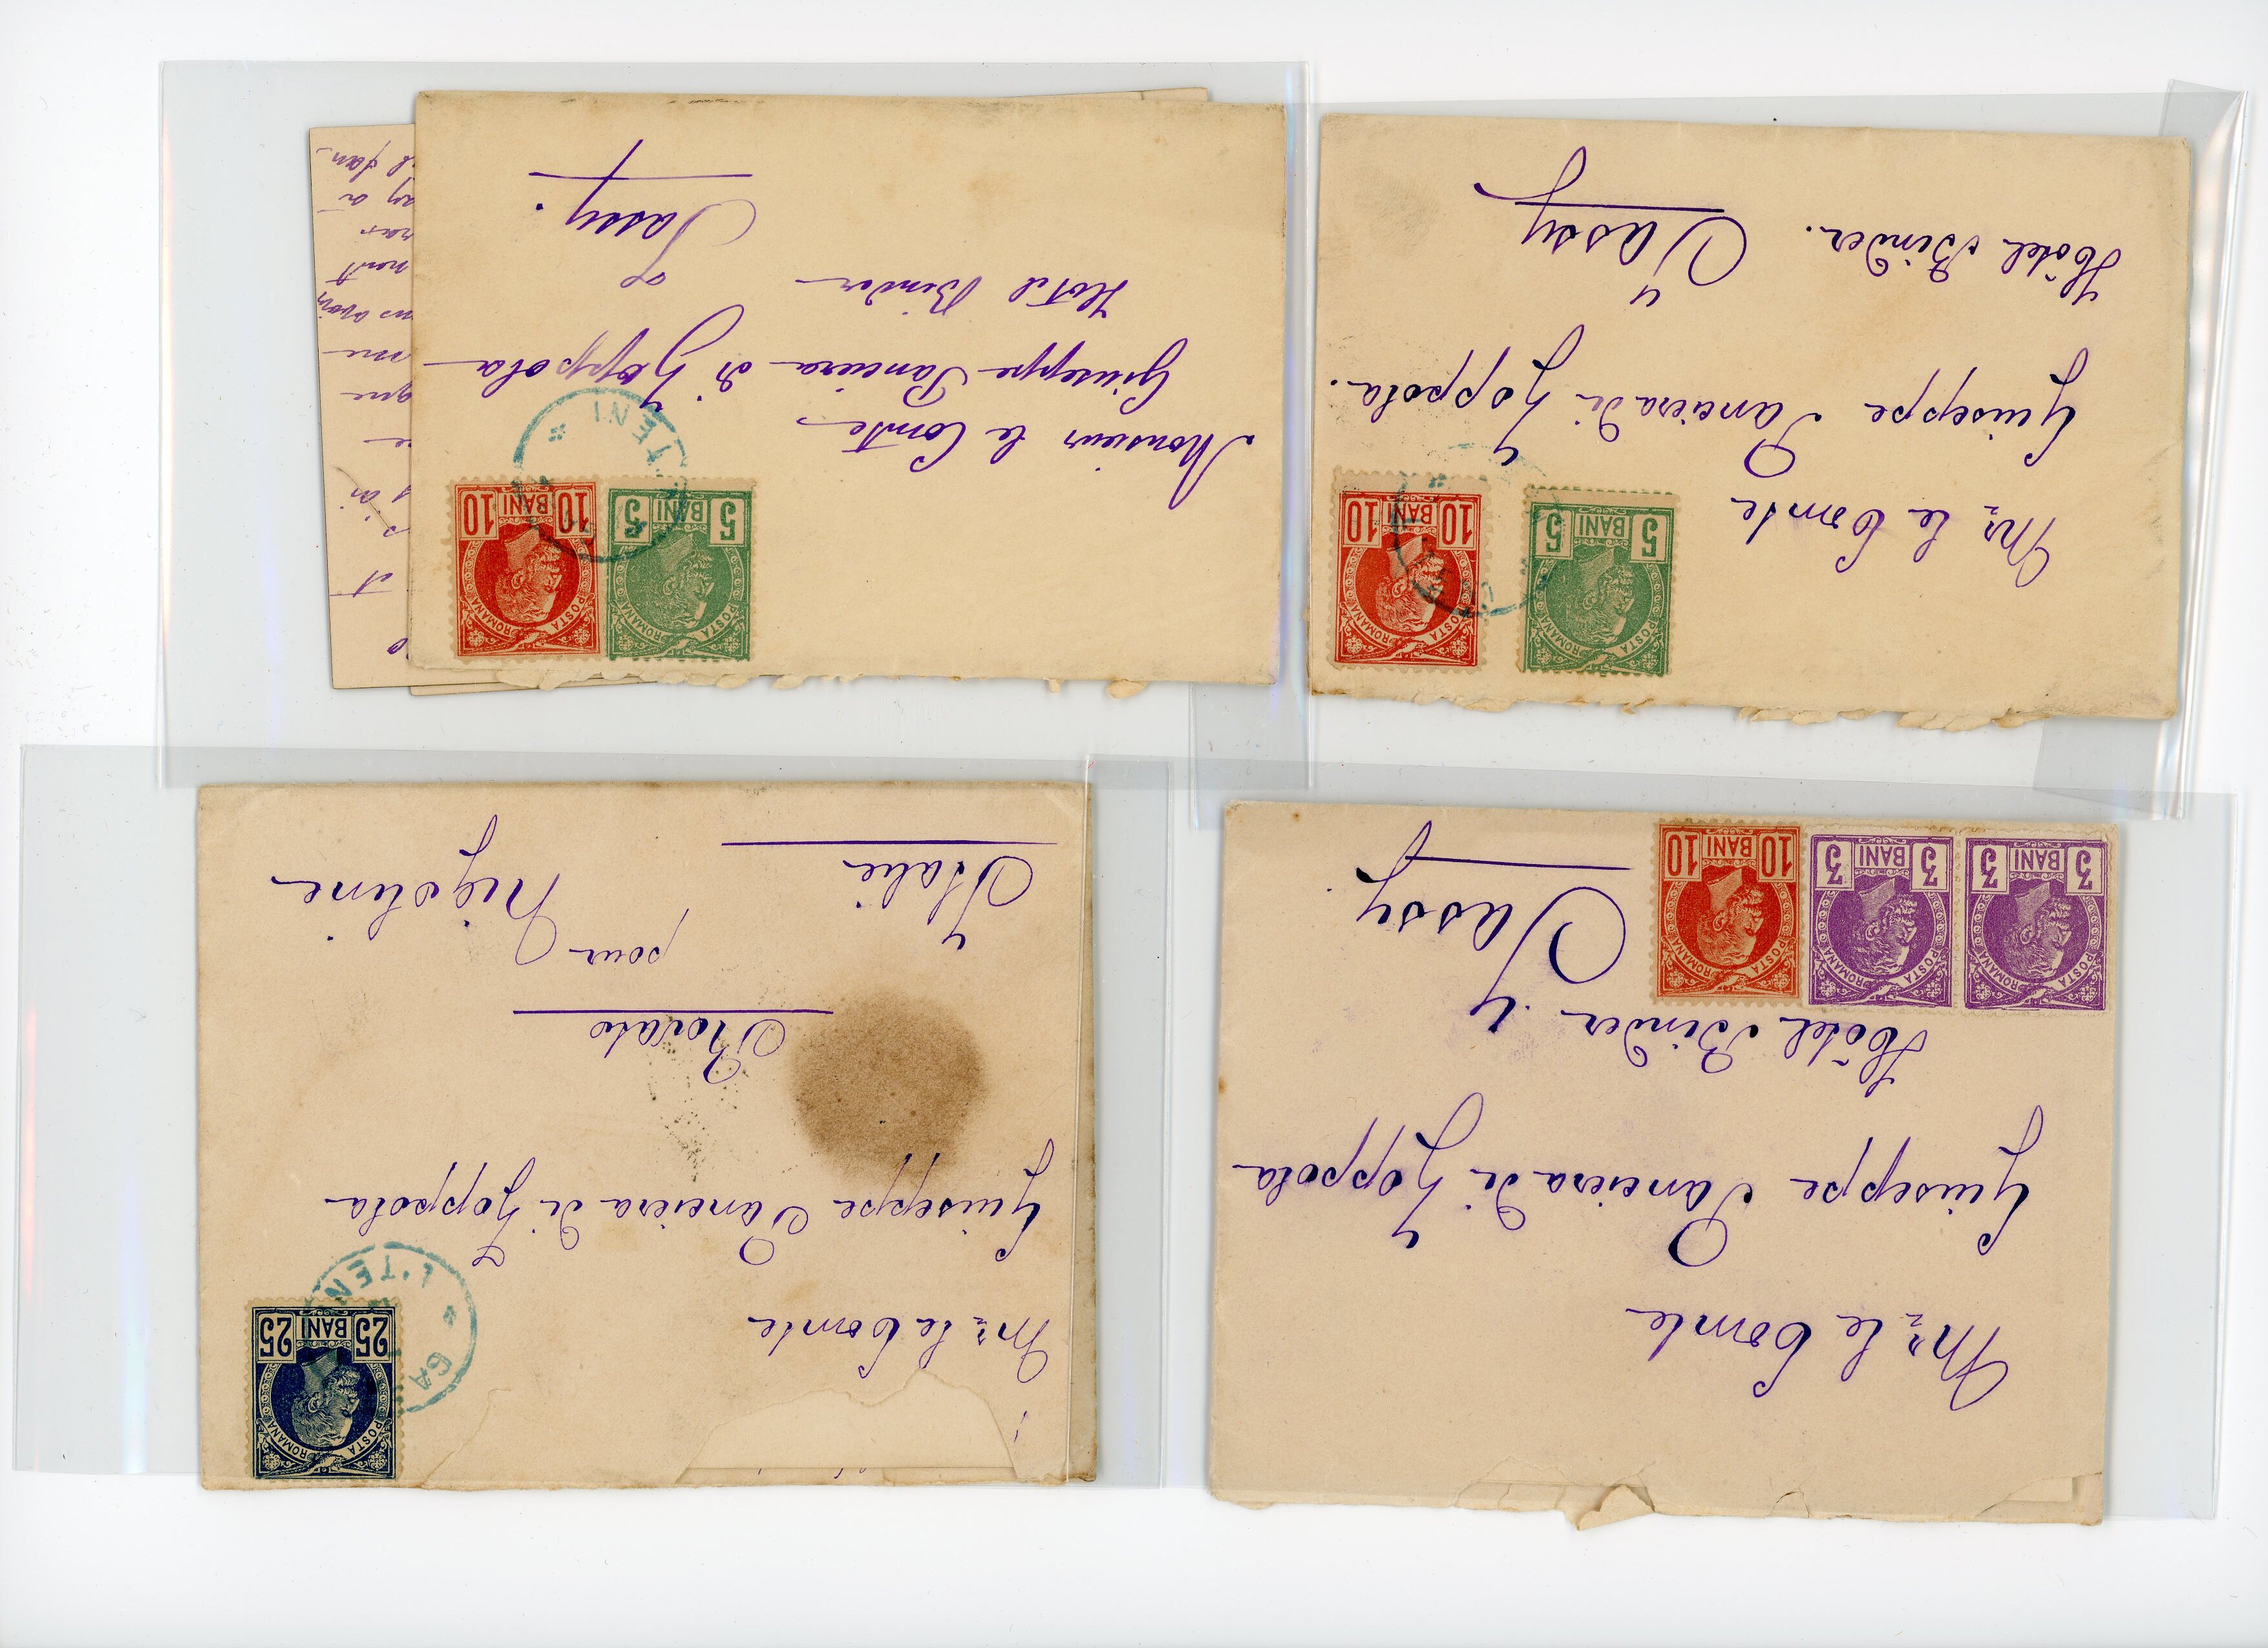 Mr le Comte
Guiseppe Panciera di Zoppola
Hôtel Binder.
Jassy.
POSTA ROMANA
3 BANI 3
POSTA ROMANA
3 BANI 3
POSTA ROMANA
10 BANI 10
POSTA ROMANA
25 BANI 25
Mr le Comte
Guiseppe Panciera di Zoppola
Rovato
Italie pour Nigoline
POSTA ROMANA
5 BANI 5
POSTA ROMANA
10 BANI 10
Mr le Comte
Guiseppe Panciera di Zoppola.
Hôtel Binder.
Jassy
POSTA ROMANA
5 BANI 5
POSTA ROMANA
10 BANI 10
Monsieur le Comte
Giuseppe Panciera di Zoppola
Hotel Binder
Jassy.
que
me